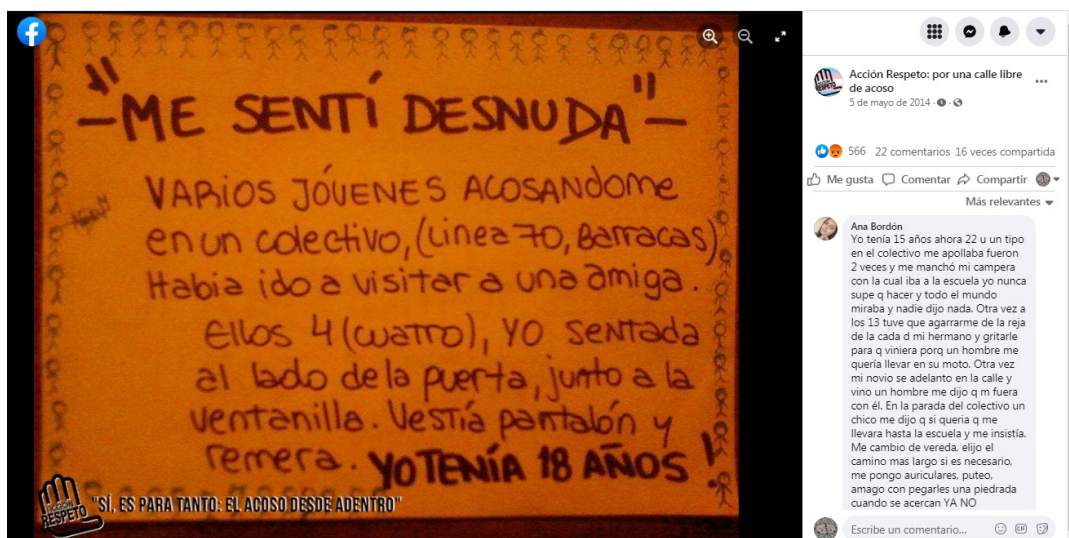 "ME SENTÍ DESNUDA"
VARIOS JÓVENES ACOSANDOME
en un colectivo, (Linea 70, Barracas)
Habia ido a visitar a una amiga.
Ellos 4 (cuatro), YO sentada
al lado de la puerta, junto a la
ventanilla. Vestía pantalón y
remera. YO TENÍA 18 AÑOS!
ACCIÓN
RESPETO
"SÍ, ES PARA TANTO: EL ACOSO DESDE ADENTRO"
Acción Respeto: por una calle libre
de acoso
5 de mayo de 2014
566 22 comentarios 16 veces compartida
Me gusta Comentar Compartir
Más relevantes
Ana Bordón
Yo tenía 15 años ahora 22 u un tipo
en el colectivo me apollaba fueron
2 veces y me manchó mi campera
con la cual iba a la escuela yo nunca
supe q hacer y todo el mundo
miraba y nadie dijo nada. Otra vez a
los 13 tuve que agarrarme de la reja
de la cada d mi hermano y gritarle
para q viniera porq un hombre me
quería llevar en su moto. Otra vez
mi novio se adelanto en la calle y
vino un hombre me dijo q m fuera
con él. En la parada del colectivo un
chico me dijo q si queria q me
llevara hasta la escuela y me insistía.
Me cambio de vereda, elijo el
camino mas largo si es necesario,
me pongo auriculares, puteo,
amago con pegarles una piedrada
cuando se acercan YA NO
Escribe un comentario...